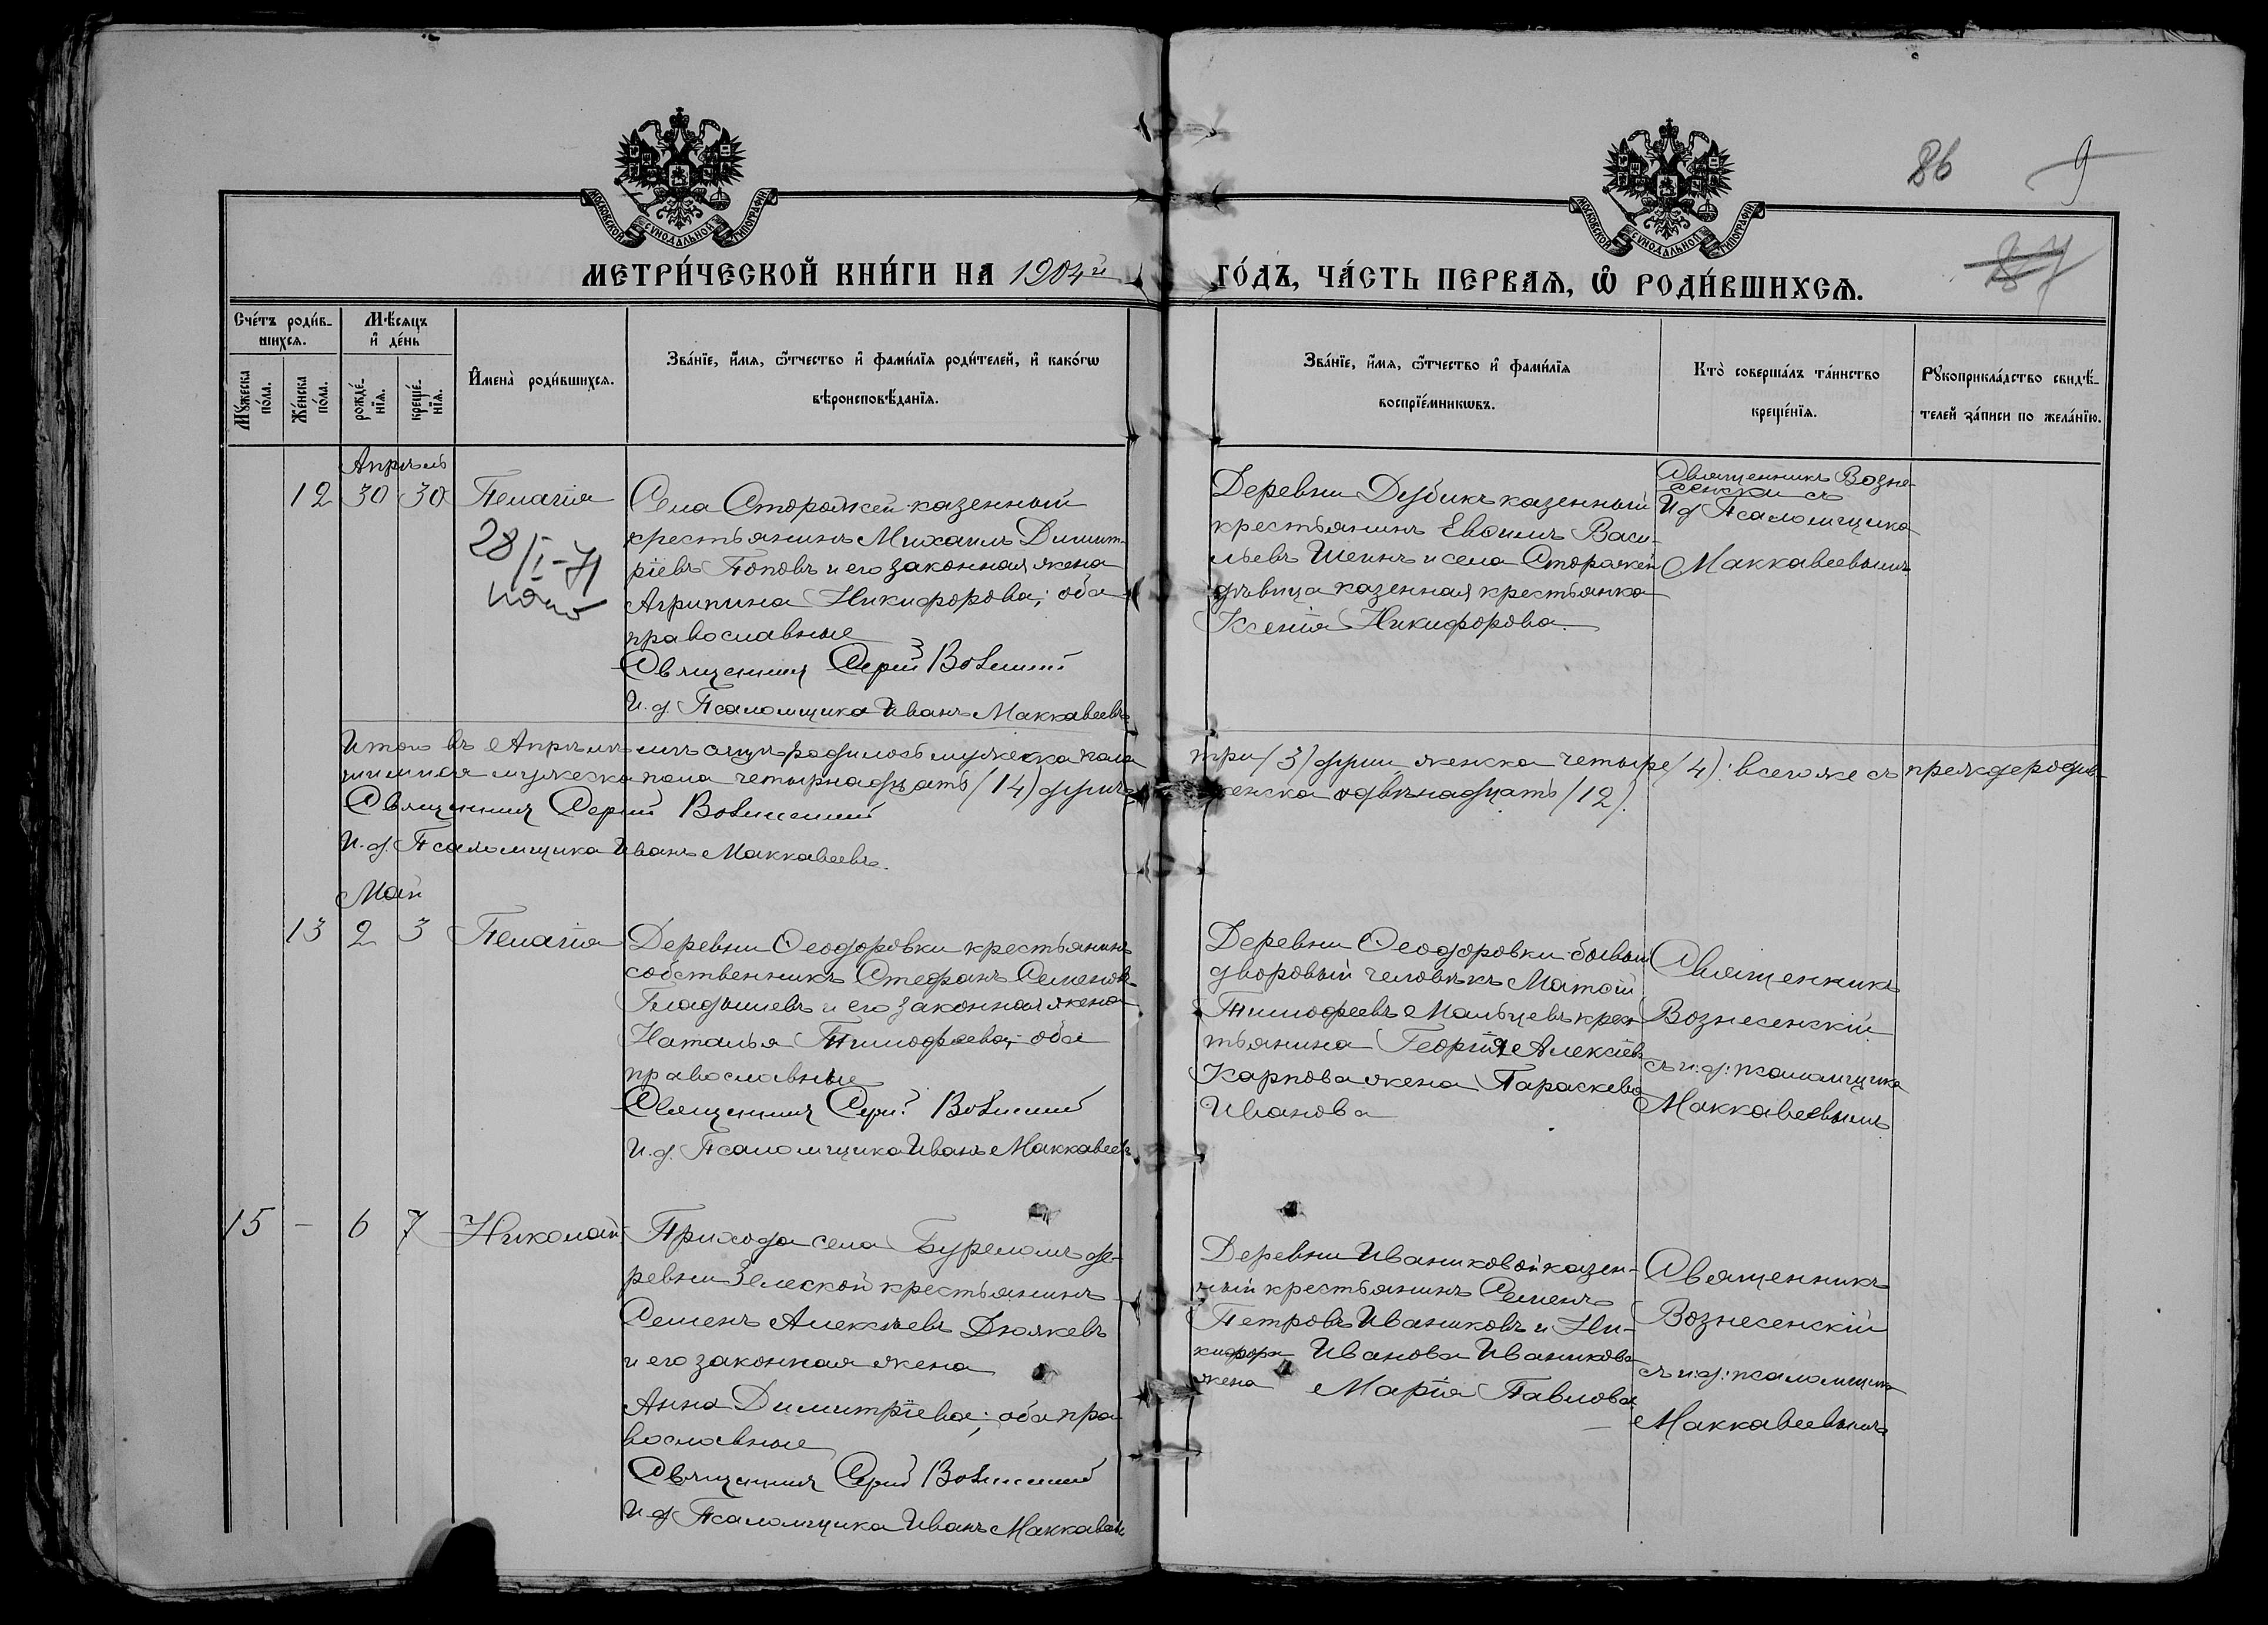 МОСКОВСКОЙ СУНОДАЛЬНОЙ ТИПОГРАФІИ
МОСКОВСКОЙ СУНОДАЛЬНОЙ ТИПОГРАФІИ
86 9
87
МЕТРИ́ЧЕСКОЙ КНИ́ГИ НА 1904й ГО́ДЪ, ЧА́СТЬ ПЕРВАѦ, Ѡ҆ РОДИ́ВШИХСѦ.
Сче́тъ роди́в-
шихсѧ.
Мꙋжеска по́ла.
Же́нска по́ла.
Мѣ́сѧцъ
и҆ де́нь
рожде́-
нїѧ.
креще́-
нїѧ.
И҆мена̀ роди́вшихсѧ.
Зва́нїе, и҆́мѧ, ѻ҆́тчество и҆ фами́лїѧ роди́телей, и҆ како́гѡ
вѣроисповѣ́данїѧ.
Зва́нїе, и҆́мѧ, ѻ҆́тчество и҆ фами́лїѧ
воспрїе́мникѡвъ.
Кто̀ соверша́лъ та́инство
креще́нїѧ.
Рꙋкоприкла́дство свидѣ́-
телей за́писи по жела́нїю.
Апрѣль
12 30 30 Пелагія
28/I-71
Села Сторожей казенный
крестьянинъ Михаилъ Димит-
ріевъ Поповъ и его законная жена
Агрипина Никифорова; оба
православные
Священникъ Сергій Вознесенский
И.д. Псаломщика Иванъ Маккавеевъ
Деревни Дубикъ казенный
крестьянинъ Евѳимъ Васи-
льевъ Шеинъ и села Сторожей
дѣвица казенная крестьянка
Ксенія Никифорова.
Священникъ Возне-
сенскій съ
И д Псаломщика
Маккавеевымъ
Итого въ Апрѣлѣ мѣсяцѣ родилось мужеска пола три /3/ души женска четыре /4/: всего же съ преждеродив-
шимися мужеска пола четырнадцать /14/ душъ женска двѣнадцать /12/.
Священникъ Сергій Вознесенский
И.д. Псаломщика Иванъ Маккавеевъ.
Май
13 2 3 Пелагія
Деревни Ѳеодоровки крестьянинъ
собственникъ Стефанъ Семеновъ
Гладышевъ и его законная жена
Наталья Тимофеева; оба
православные
Священникъ Сергій Вознесенский
И.д. Псаломщика Иванъ Маккавеевъ
Деревни Ѳеодоровки бывый
дворовый человѣкъ Матѳій
Тимофеевъ Мальцевъ крес-
тьянина Георгія Алексіева
Карпова жена Параскева
Иванова
Священникъ
Вознесенскій
съ и:д: псаломщика
Маккавеевымъ
15 - 6 7 Николай
Прихода села Буреломъ де-
ревни Земской крестьянинъ
Семенъ Алексѣевъ Дюжевъ
и его законная жена
Анна Димитріева; оба пра-
вославные
Священникъ Сергій Вознесенский
И д Псаломщика Иванъ Маккавеевъ
Деревни Иваниковой казен-
ный крестьянинъ Семенъ
Петровъ Иваниковъ и Ни-
кифора Иванова Иваникова
жена Марія Павлова
Священникъ
Вознесенскій
съ и:д: псаломщика
Маккавеевымъ